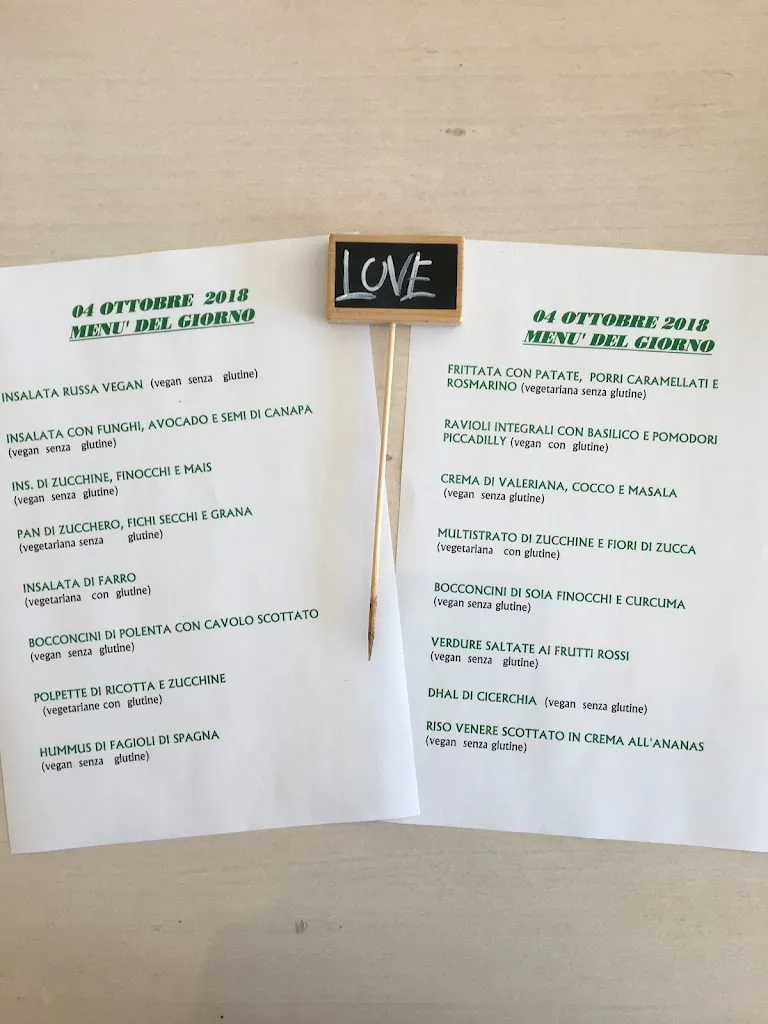 LOVE
04 OTTOBRE 2018
MENU' DEL GIORNO
INSALATA RUSSA VEGAN (vegan senza glutine)
INSALATA CON FUNGHI, AVOCADO E SEMI DI CANAPA
(vegan senza glutine)
INS. DI ZUCCHINE, FINOCCHI E MAIS
(vegan senza glutine)
PAN DI ZUCCHERO, FICHI SECCHI E GRANA
(vegetariana senza glutine)
INSALATA DI FARRO
(vegetariana con glutine)
BOCCONCINI DI POLENTA CON CAVOLO SCOTTATO
(vegan senza glutine)
POLPETTE DI RICOTTA E ZUCCHINE
(vegetariane con glutine)
HUMMUS DI FAGIOLI DI SPAGNA
(vegan senza glutine)
04 OTTOBRE 2018
MENU' DEL GIORNO
FRITTATA CON PATATE, PORRI CARAMELLATI E
ROSMARINO (vegetariana senza glutine)
RAVIOLI INTEGRALI CON BASILICO E POMODORI
PICCADILLY (vegan con glutine)
CREMA DI VALERIANA, COCCO E MASALA
(vegan senza glutine)
MULTISTRATO DI ZUCCHINE E FIORI DI ZUCCA
(vegetariana con glutine)
BOCCONCINI DI SOIA FINOCCHI E CURCUMA
(vegan senza glutine)
VERDURE SALTATE AI FRUTTI ROSSI
(vegan senza glutine)
DHAL DI CICERCHIA (vegan senza glutine)
RISO VENERE SCOTTATO IN CREMA ALL'ANANAS
(vegan senza glutine)